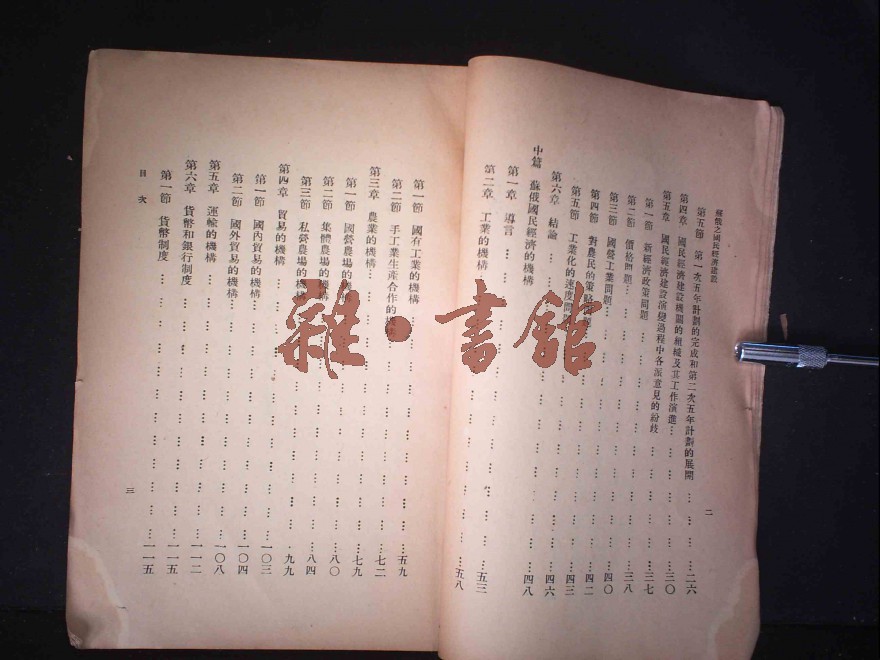 蘇俄之國民經濟建設
第五節 第一次五年計劃的完成和第二次五年計劃的展開……二六
第四章 國民經濟建設機關的組織及其工作演進……三〇
第五章 國民經濟建設演變過程中各派意見的紛歧
第一節 新經濟政策問題……三七
第二節 價格問題……三八
第三節 國營工業問題……四〇
第四節 對農民的策略問題……四二
第五節 工業化的速度問題……四三
第六章 結論……四六
中篇 蘇俄國民經濟的機構……四八
第一章 導言……五三
第二章 工業的機構……五八
二
第一節 國有工業的機構……五九
第二節 手工業生產合作的機構……七二
第三章 農業的機構……七九
第一節 國營農場的機構……八〇
第二節 集體農場的機構
第三節 私營農場的機構……八四
第四章 貿易的機構……九九
第一節 國內貿易的機構……一〇三
第二節 國外貿易的機構……一〇四
第五章 運輸的機構……一〇八
第六章 貨幣和銀行制度……一一二
第一節 貨幣制度……一一五
目次
三
雜·書館